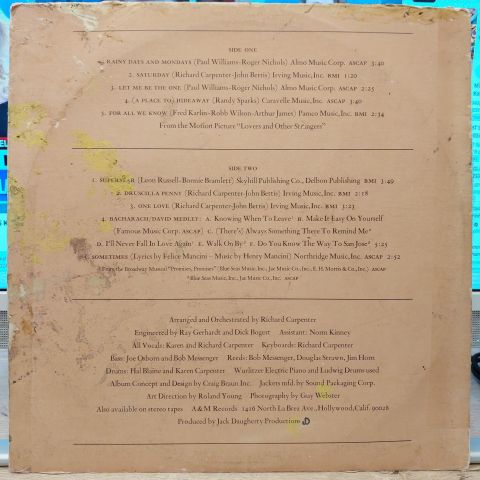 SIDE ONE
1. RAINY DAYS AND MONDAYS (Paul Williams-Roger Nichols) Almo Music Corp. ASCAP 3:40
2. SATURDAY (Richard Carpenter-John Bettis) Irving Music, Inc. BMI 1:20
3. LET ME BE THE ONE (Paul Williams-Roger Nichols) Almo Music Corp. ASCAP 2:25
4. (A PLACE TO) HIDEAWAY (Randy Sparks) Caravelle Music, Inc. ASCAP 3:40
5. FOR ALL WE KNOW (Fred Karlin-Robb Wilson-Arthur James) Pamco Music, Inc. BMI 2:34
From the Motion Picture "Lovers and Other Strangers"
SIDE TWO
1. SUPERSTAR (Leon Russell-Bonnie Bramlett) Skyhill Publishing Co., Delbon Publishing BMI 3:49
2. DRUSCILLA PENNY (Richard Carpenter-John Bettis) Irving Music, Inc. BMI 2:18
3. ONE LOVE (Richard Carpenter-John Bettis) Irving Music, Inc. BMI 3:23
4. BACHARACH/DAVID MEDLEY: A. Knowing When To Leave¹ B. Make It Easy On Yourself
(Famous Music Corp. ASCAP) C. (There's) Always Something There To Remind Me²
D. I'll Never Fall In Love Again¹ E. Walk On By² F. Do You Know The Way To San Jose² 5:25
5. SOMETIMES (Lyrics by Felice Mancini – Music by Henry Mancini) Northridge Music, Inc. ASCAP 2:52
¹From the Broadway Musical "Promises, Promises" (Blue Seas Music, Inc., Jac Music Co., Inc., E. H. Morris & Co., Inc.) ASCAP
²Blue Seas Music, Inc., Jac Music Co., Inc. ASCAP
Arranged and Orchestrated by Richard Carpenter
Engineered by Ray Gerhardt and Dick Bogert Assistant: Norm Kinney
All Vocals: Karen and Richard Carpenter Keyboards: Richard Carpenter
Bass: Joe Osborn and Bob Messenger Reeds: Bob Messenger, Douglas Strawn, Jim Horn
Drums: Hal Blaine and Karen Carpenter Wurlitzer Electric Piano and Ludwig Drums used
Album Concept and Design by Craig Braun Inc. Jackets mfd. by Sound Packaging Corp.
Art Direction by Roland Young Photography by Guy Webster
Also available on stereo tapes A&M Records 1416 North La Brea Ave., Hollywood, Calif. 90028
Produced by Jack Daugherty Productions